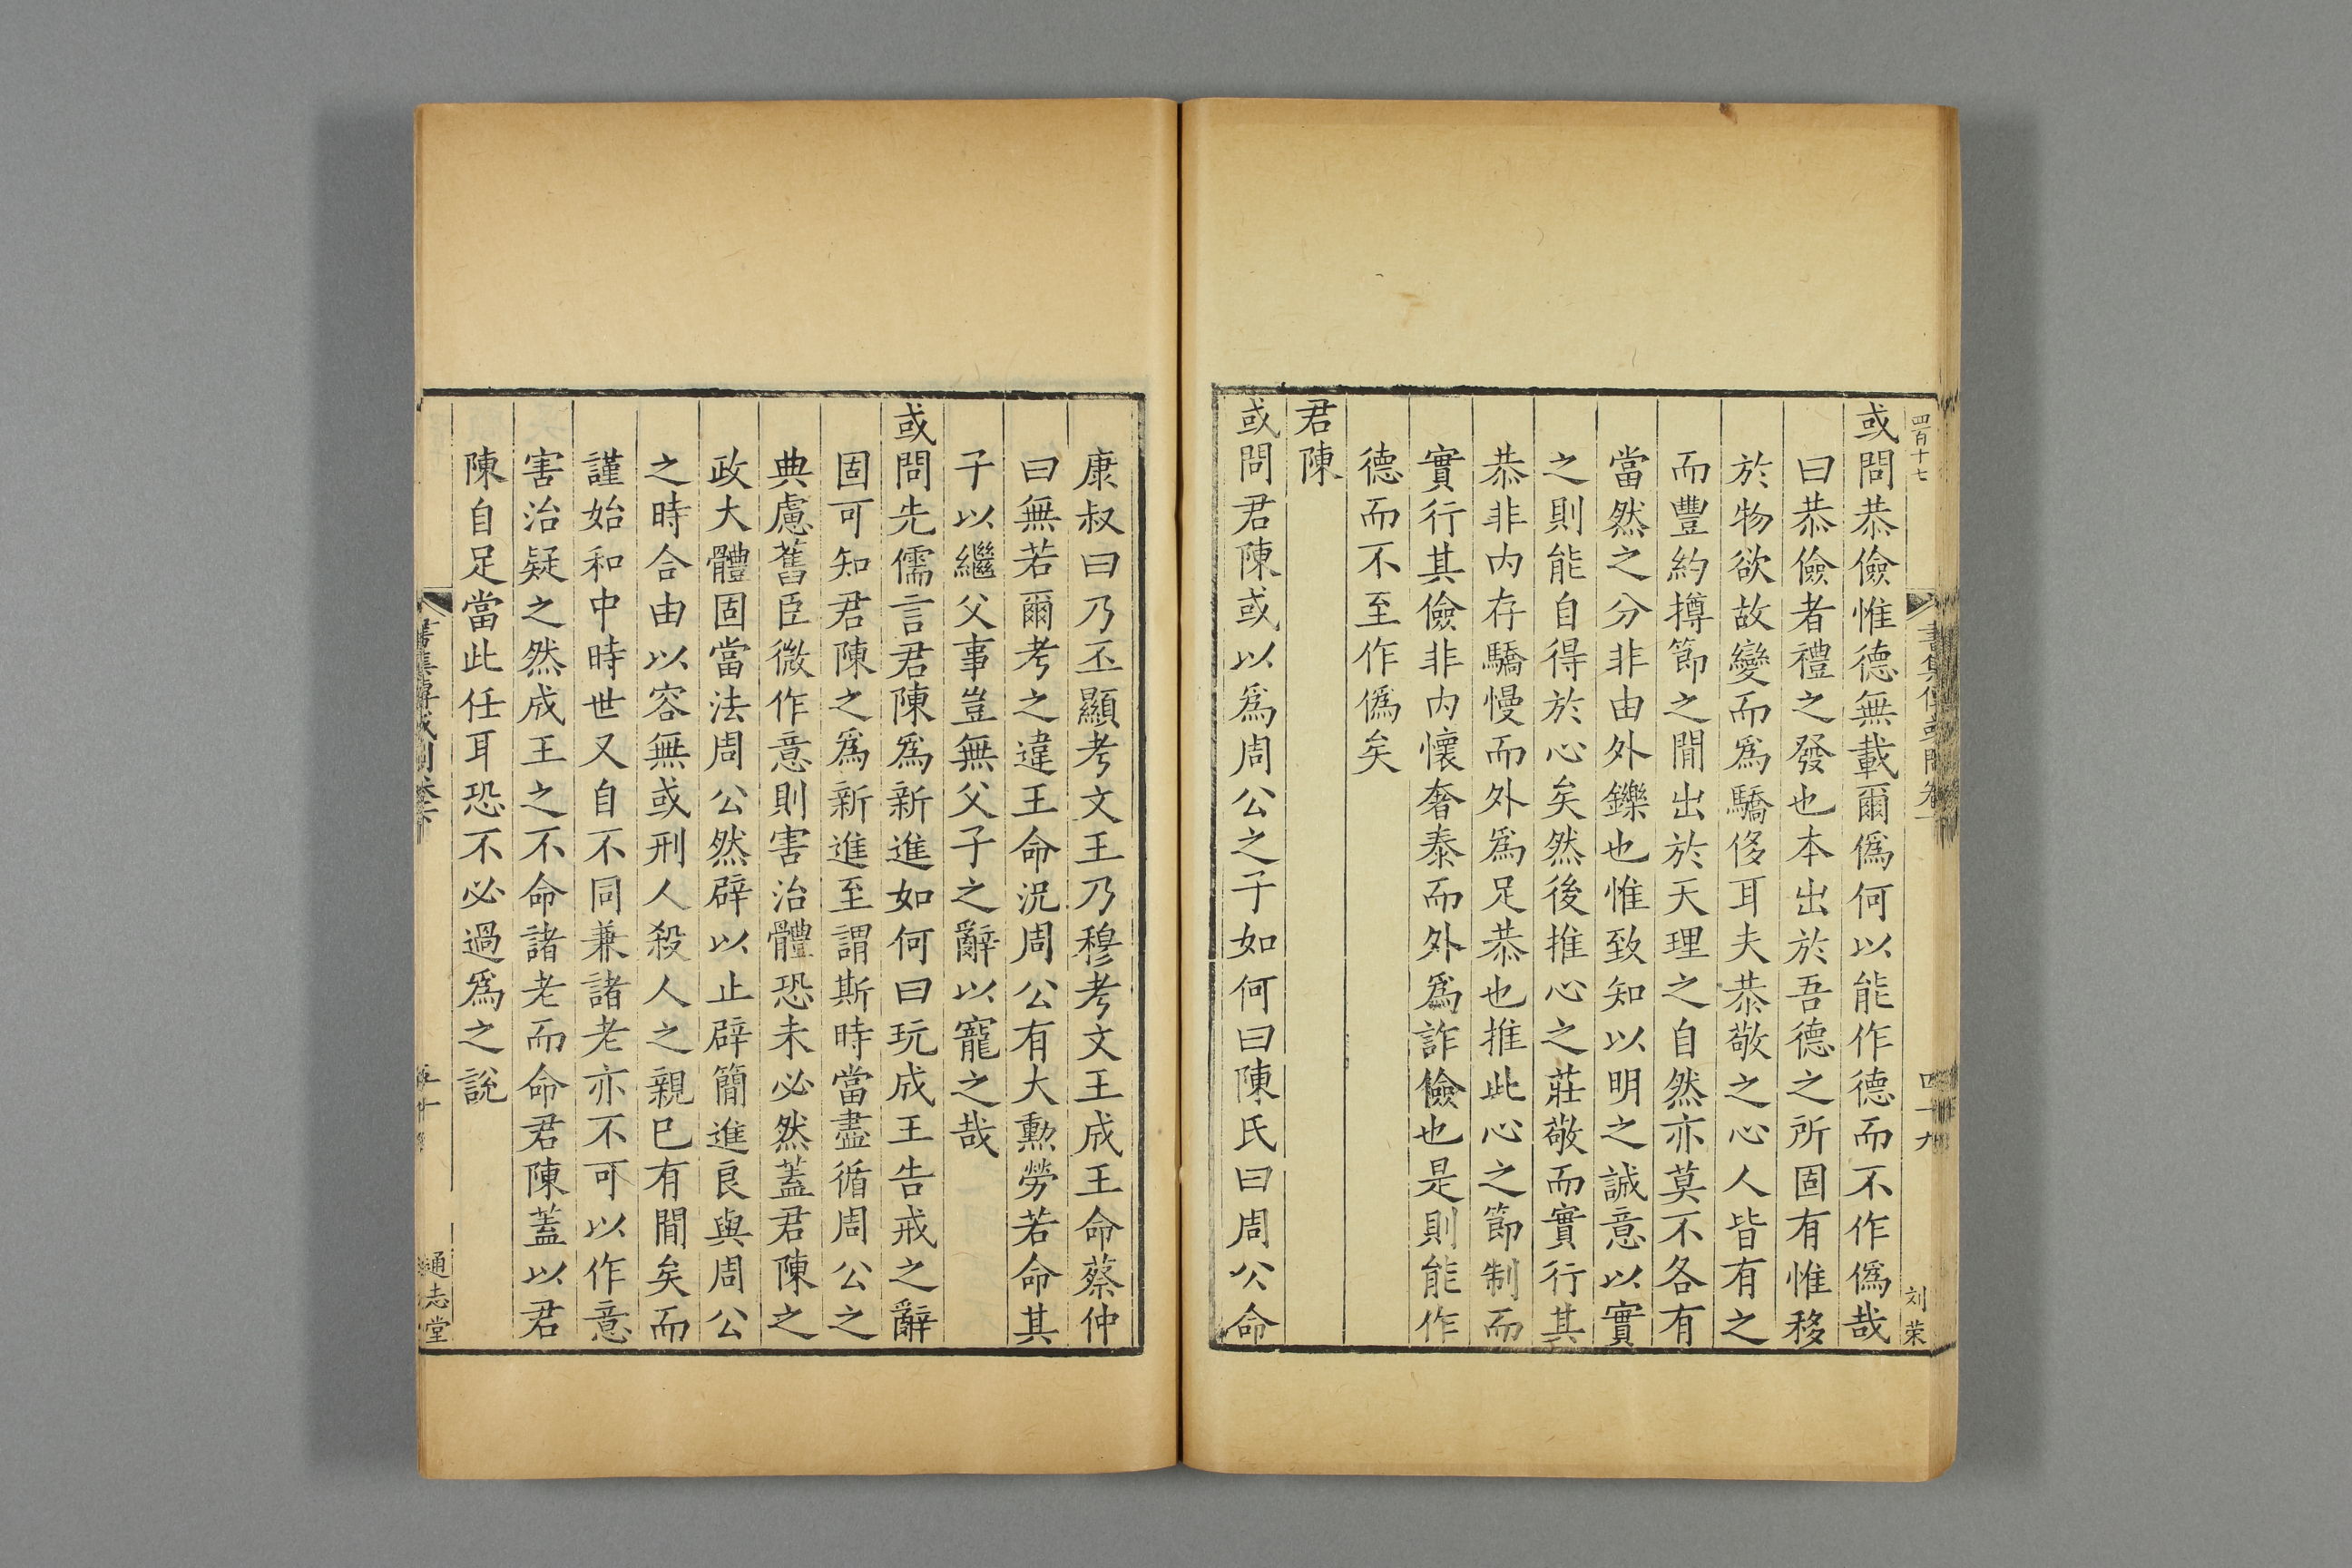 四百十七
書集傳或問卷下
四十九
刘荣
或問恭儉惟德無載爾僞何以能作德而不作僞哉
曰恭儉者禮之發也本出於吾德之所固有惟移
於物欲故變而爲驕侈耳夫恭敬之心人皆有之
而豐約撙節之間出於天理之自然亦莫不各有
當然之分非由外鑠也惟致知以明之誠意以實
之則能自得於心矣然後推心之莊敬而實行其
恭非内存驕慢而外爲足恭也推此心之節制而
實行其儉非内懷奢泰而外爲詐儉也是則能作
德而不至作僞矣
君陳
或問君陳或以爲周公之子如何曰陳氏曰周公命
康叔曰乃丕顯考文王乃穆考文王成王命蔡仲
曰無若爾考之違王命況周公有大勲勞若命其
子以繼父事豈無父子之辭以寵之哉
或問先儒言君陳爲新進如何曰玩成王告戒之辭
固可知君陳之爲新進至謂斯時當盡循周公之
典慮舊臣微作意則害治體恐未必然蓋君陳之
政大體固當法周公然辟以止辟簡進良與周公
之時合由以容無或刑人殺人之親已有間矣而
謹始和中時世又自不同兼諸老亦不可以作意
害治疑之然成王之不命諸老而命君陳蓋以君
陳自足當此任耳恐不必過爲之說
書集傳或問卷下
通志堂